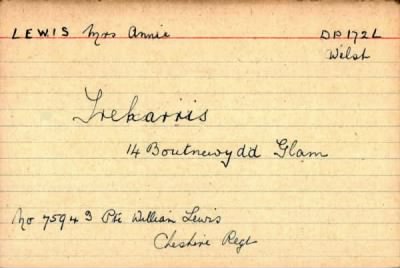 LEWIS Mrs Annie DP172L
Welsh
Trekarris
14 Boutnewydd Glam
No 75943 Pte William Lewis
Cheshire Regt